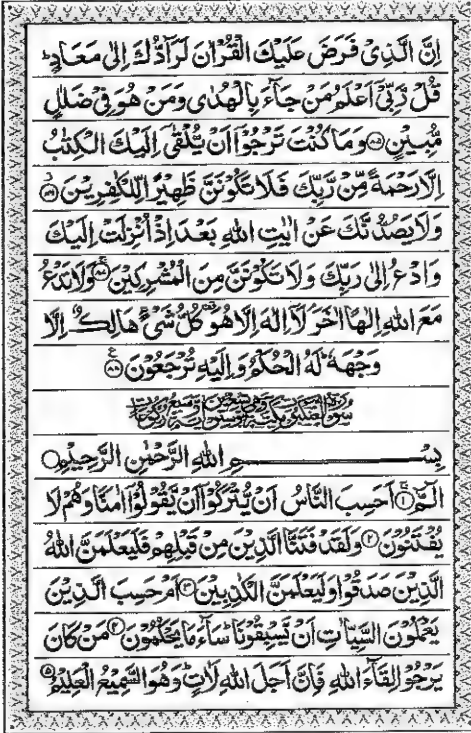 اِنَّ الَّذِىْ فَرَضَ عَلَيْكَ الْقُرْاٰنَ لَرَآدُّكَ اِلٰى مَعَادٍؕ
قُلْ رَّبِّىْٓ اَعْلَمُ مَنْ جَآءَ بِالْهُدٰى وَمَنْ هُوَ فِىْ ضَلٰلٍ
مُّبِيْنٍ ۸۵ وَمَا كُنْتَ تَرْجُوْٓا اَنْ يُّلْقٰٓى اِلَيْكَ الْكِتٰبُ
اِلَّا رَحْمَةً مِّنْ رَّبِّكَ فَلَا تَكُوْنَنَّ ظَهِيْرًا لِّلْكٰفِرِيْنَ ۸۶
وَلَا يَصُدُّنَّكَ عَنْ اٰيٰتِ اللّٰهِ بَعْدَ اِذْ اُنْزِلَتْ اِلَيْكَ
وَادْعُ اِلٰى رَبِّكَ وَلَا تَكُوْنَنَّ مِنَ الْمُشْرِكِيْنَ ۸۷ وَلَا تَدْعُ
مَعَ اللّٰهِ اِلٰهًا اٰخَرَ ۘ لَآ اِلٰهَ اِلَّا هُوَ ۫ كُلُّ شَىْءٍ هَالِكٌ اِلَّا
وَجْهَهٗ ؕ لَهُ الْحُكْمُ وَاِلَيْهِ تُرْجَعُوْنَ ۸۸
بِسْمِ اللّٰهِ الرَّحْمٰنِ الرَّحِيْمِ
الٓمّٓ ۱ اَحَسِبَ النَّاسُ اَنْ يُّتْرَكُوْٓا اَنْ يَّقُوْلُوْٓا اٰمَنَّا وَهُمْ لَا
يُفْتَنُوْنَ ۲ وَلَقَدْ فَتَنَّا الَّذِيْنَ مِنْ قَبْلِهِمْ فَلَيَعْلَمَنَّ اللّٰهُ
الَّذِيْنَ صَدَقُوْا وَلَيَعْلَمَنَّ الْكٰذِبِيْنَ ۳ اَمْ حَسِبَ الَّذِيْنَ
يَعْمَلُوْنَ السَّيِّاٰتِ اَنْ يَّسْبِقُوْنَا ؕ سَآءَ مَا يَحْكُمُوْنَ ۴ مَنْ كَانَ
يَرْجُوْا لِقَآءَ اللّٰهِ فَاِنَّ اَجَلَ اللّٰهِ لَاٰتٍ ؕ وَهُوَ السَّمِيْعُ الْعَلِيْمُ ۵